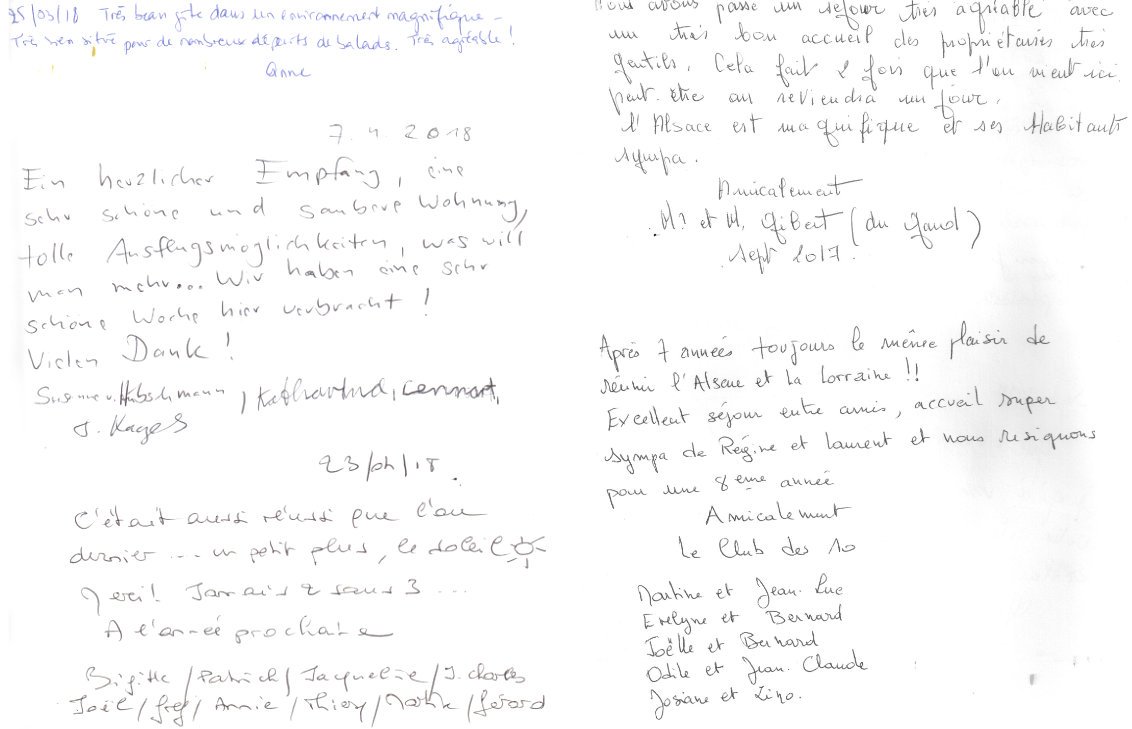 25/03/18 Très beau gîte dans un environnement magnifique -
Très bien situé pour de nombreux départs de balads. Très agréable !
Anne
7. 4 2018
Ein herzlicher Empfang, eine
sehr schöne und saubere Wohnung,
tolle Ausflugsmöglichkeiten, was will
man mehr... Wir haben eine sehr
schöne Woche hier verbracht !
Vielen Dank !
Susanne v. Hübschmann, Katharina, Lennart,
J. Kages
23/04/18.
C'était aussi réussi que l'an
dernier ... un petit plus, le soleil
Merci! Jamais 2 sans 3 ...
A l'année prochaine
Brigitte / Patrick / Jacqueline / J. charles
Joël / Greg / Annie / Thierry / Martine / Gérard
Nous avons passé un séjour très agréable avec
un très bon accueil des propriétaires très
gentils. Cela fait 2 fois que l'on vient ici
peut-être on reviendra un jour.
L'Alsace est magnifique et ses Habitants
sympa.
Amicalement
et M. Gibert (du Gard)
Sept 2017.
Après 7 années toujours le même plaisir de
réunir l'Alsace et la Lorraine !!
Excellent séjour entre amis, accueil super
sympa de Régine et Laurent et nous resignons
pour une 8ème année
Amicalement
Le Club des 10
Martine et Jean-Luc
Evelyne et Bernard
Joëlle et Bernard
Odile et Jean-Claude
Josiane et Lino.